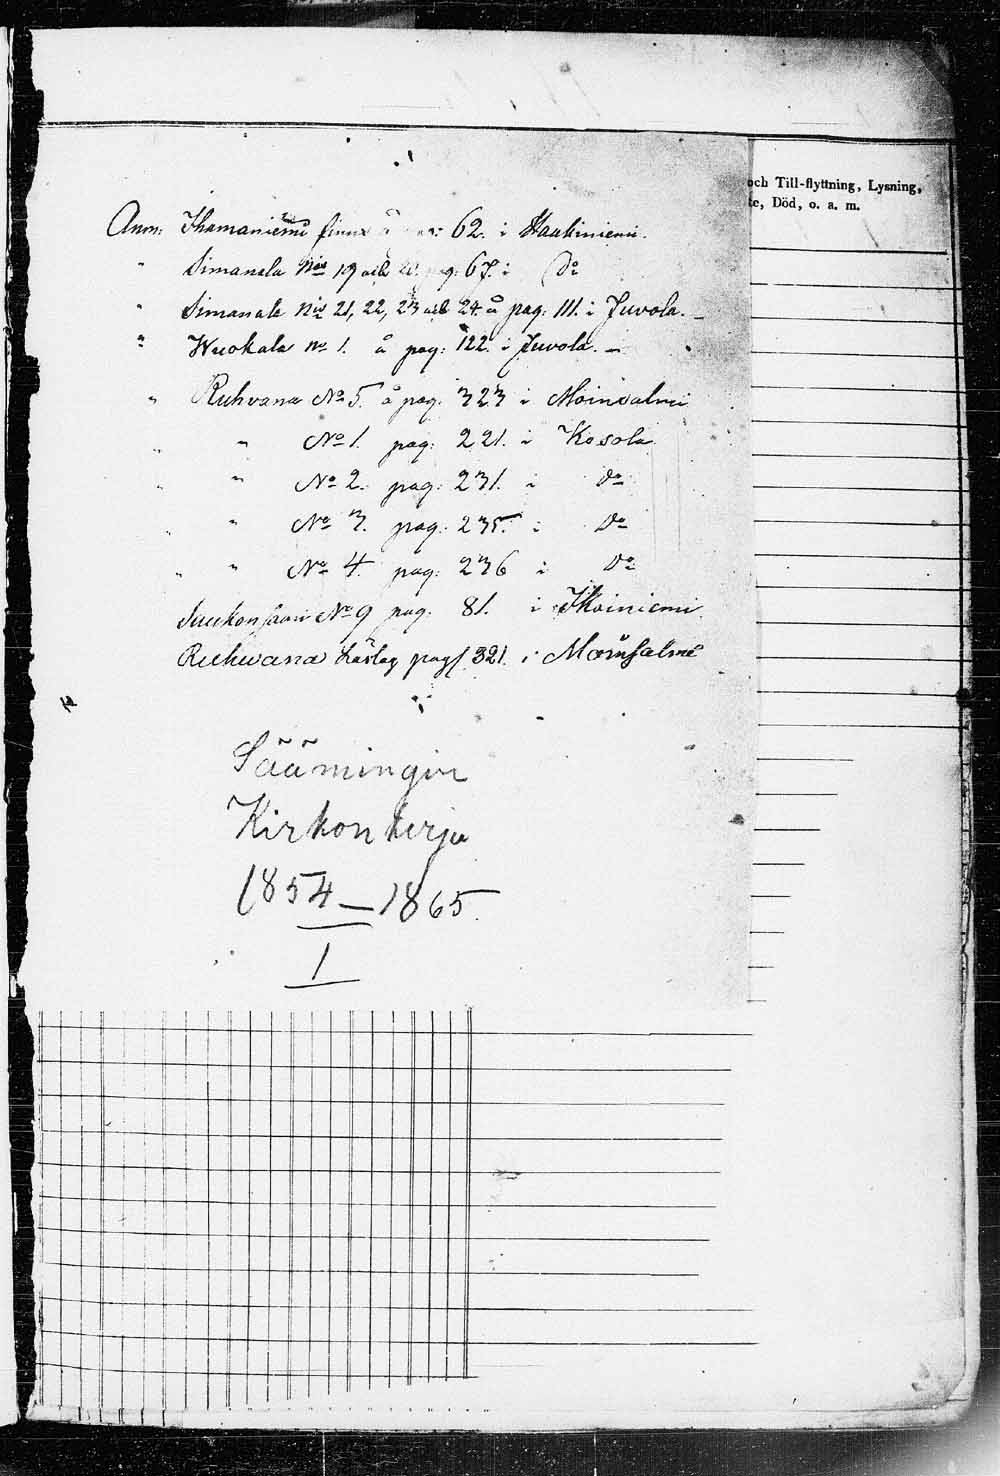 och Till-flyttning, Lysning,
te, Död, o. a. m.
Anm: Ihamaniemi finns å 62. i Haukiniemi.
" Simanala No 19 och 20. pag: 67. i Do
" Simanala No 21, 22, 23 och 24. å pag: 111. i Juvola. —
" Wuokala No 1. å pag: 122. i Juvola. —
" Ruhvana No 5. å pag: 323 i Moinsalmi
" " No 1. pag: 221. i Kosola
" " No 2. pag: 231. i Do
" No 3. pag: 235. i Do
" " No 4. pag: 236 i Do
No 9 pag. 81. i
Ruhwana Lästag pag 321. i Moinsalmi
Säämingin
Kirkonkirja
1854—1865.
1